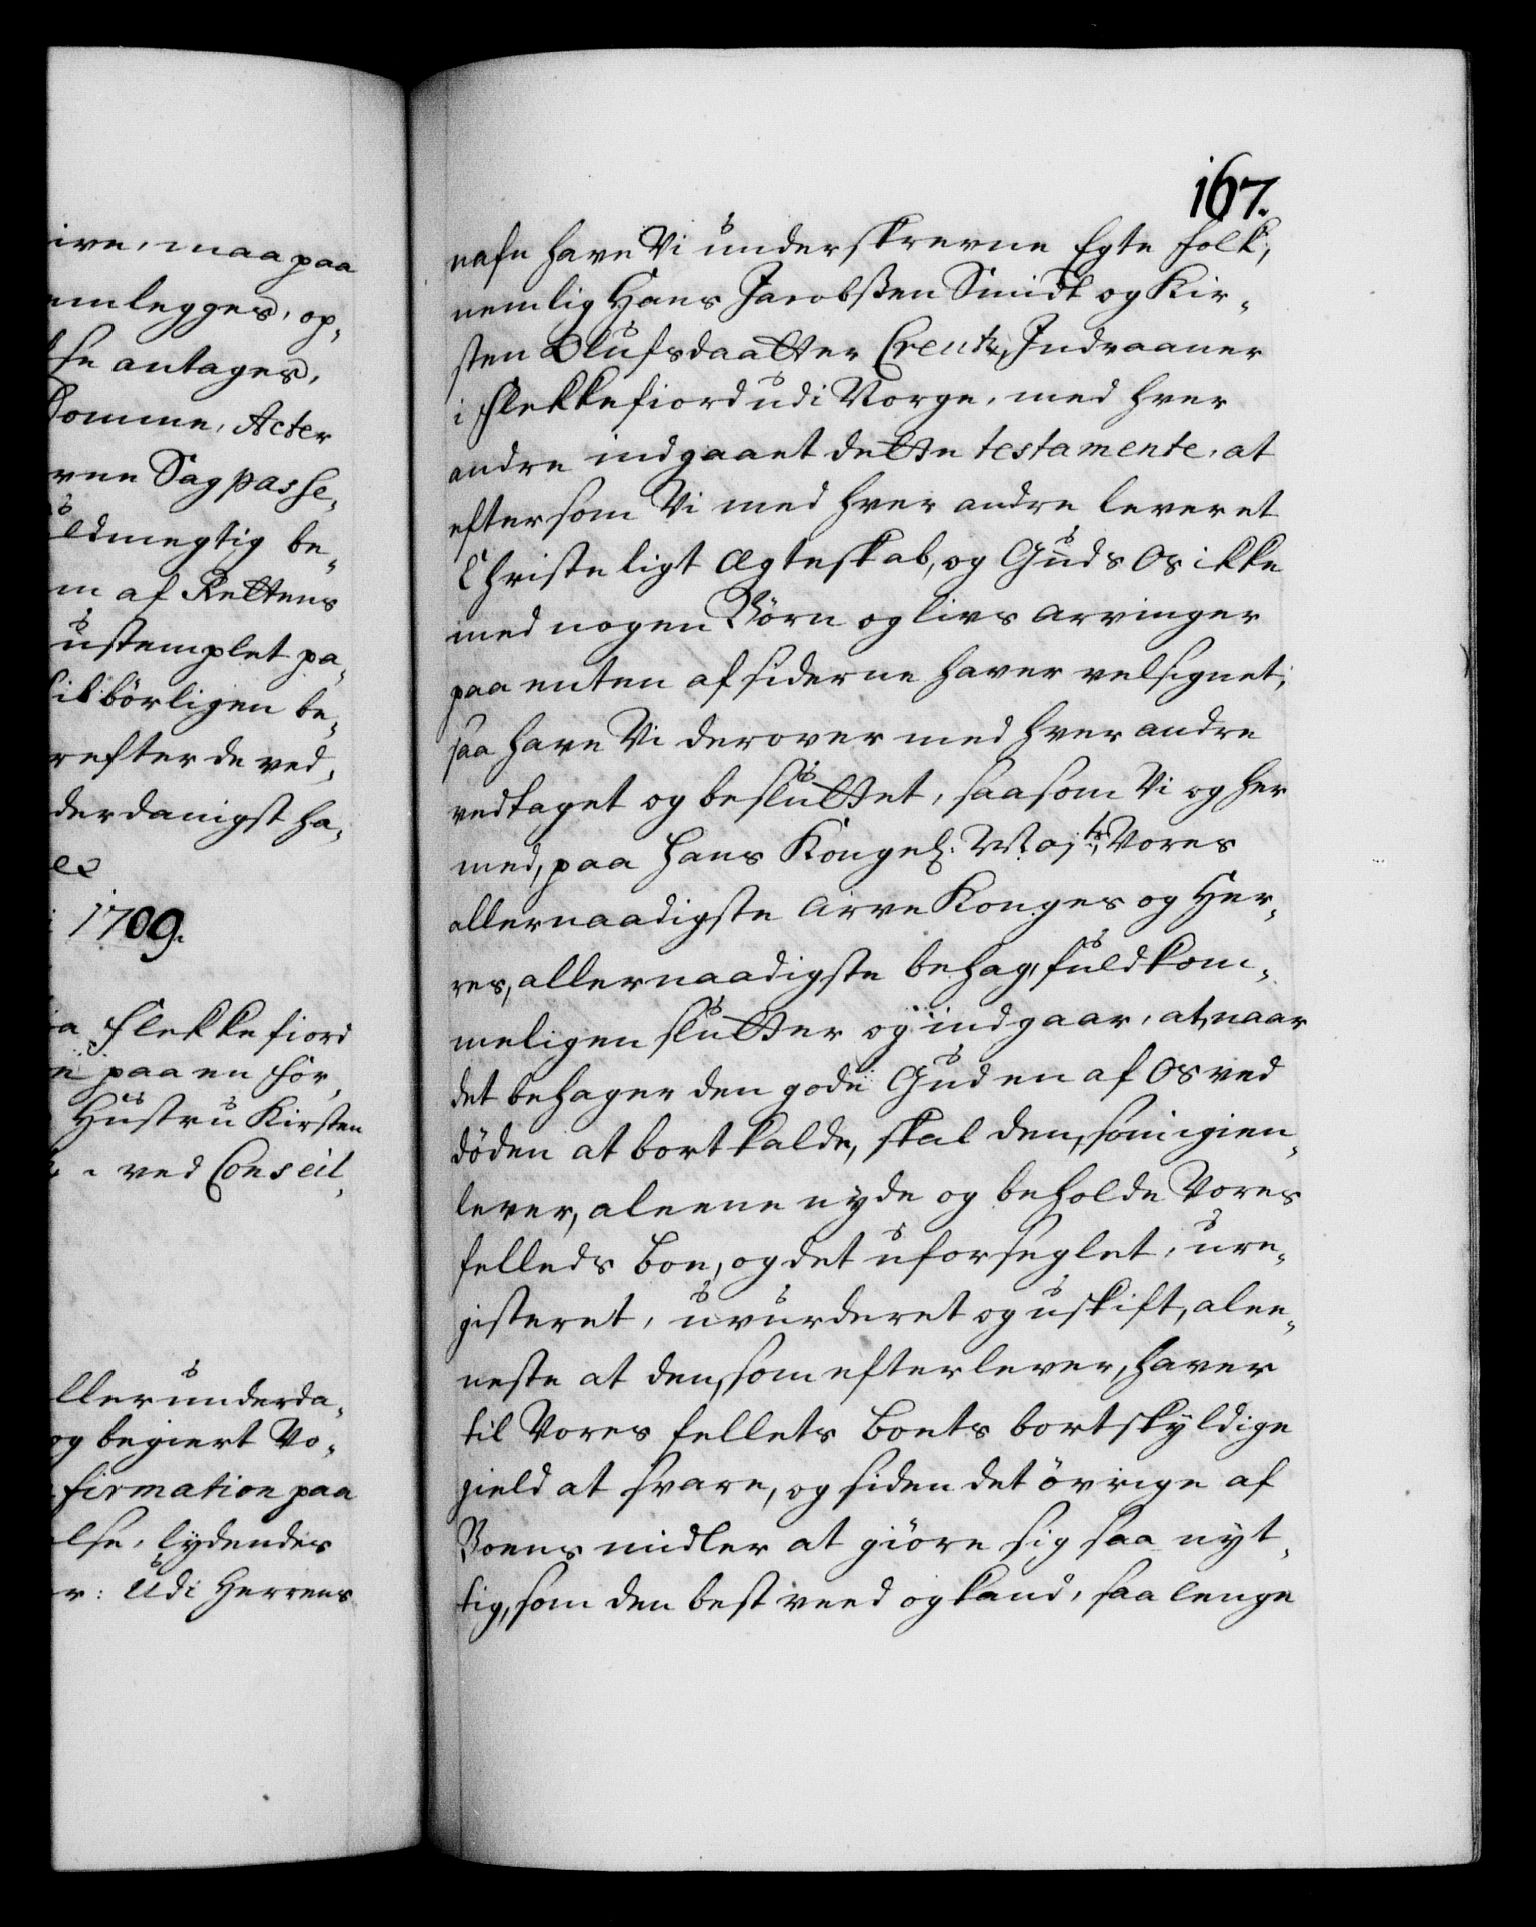 ive, maa paa
emlegges, op-
se antages,
Domme, Acter
nne Sag passe-
uldmegtig be-
m af Rettens
ustemplet pa-
il börligen be-
refter de ved-
derdanigst ha-
es
1709.
a Flekkefiord
n paa en for-
Hustru Kirsten
ved Conseil-
ller underda-
og begiert Vo-
firmation paa
lse, lydendes
r: Udi Herrens
167.
nafn have Vi underskrevne Egte folk,
nemlig Hans Jacobssen Smidt og Kir-
sten Olufsdaatter Creutz, Indvaaner
i Flekkefiord udi Norge, med hver
andre indgaaet dette testamente, at
eftersom Vi med hver andre levet et
Christeligt Ægteskab, og Gud Os ikke
med nogen Börn og livs arvinger
paa enten af siderne haver velsignet;
saa have Vi derover med hver andre
vedtaget og besluttet, saasom Vi og her
med, paa Hans Kongel. May:ts Vores
allernaadigste Arve Konges og Her-
res, allernaadigste behag, fuldkom-
meligen slutter og indgaar, at, naar
det behager den gode Gud en af Os ved
döden at bortkalde, skal den, som igien-
lever, aleene nyde og beholde Vores
felleds Boe, og det uforseglet, ure-
gisteret, uvurderet og uskift, alee-
neste at den, som efterlever, haver
til Vores fellets Boets bortskyldige
gield at svare, og siden det övrige af
Boens midler at giöre sig saa nyt-
tig, som den best veed og kand, saa lenge